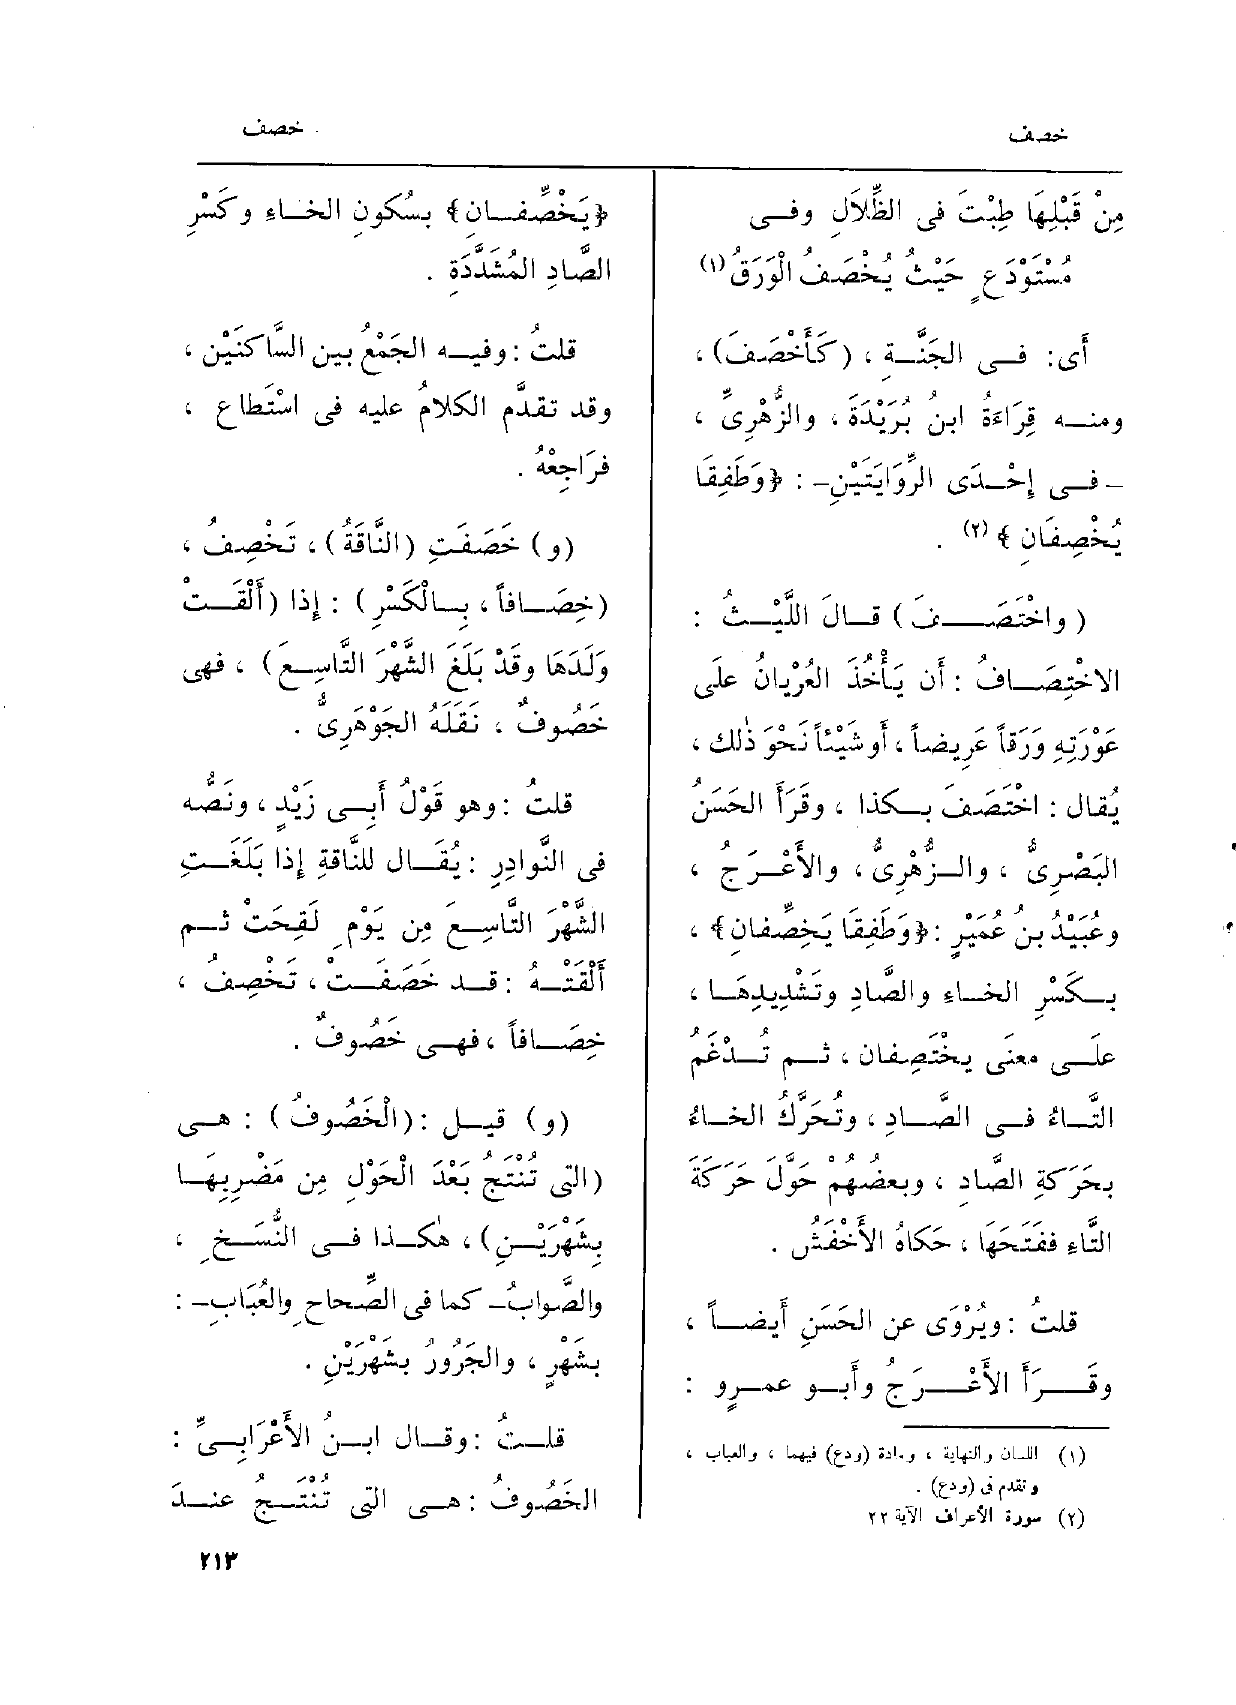 خصف
خصف
مِنْ قَبْلِهَا طِبْتَ فى الظِّلَالِ وفــى
مُسْتَوْدَعٍ حَيْثُ يُخْصَفُ الْوَرَقُ (١)
أى: فــى الجَنَّــة ، (كَأَخْصَفَ) ،
ومنــه قِرَاءَةُ ابنُ بُرَيْدَةَ ، والزُّهْرِىِّ ،
- فــى إِحْـدَى الرِّوَايَتَيْنِ- : ﴿وَطَفِقَا
يُخْصِفَانِ ﴾ (٢) .
( واخْتَصَــــفَ ) قــالَ اللَّيْــثُ :
الاخْتِصَــافُ : أن يَأْخُذَ العُرْيانُ علَى
عَوْرَتِهِ وَرَقاً عَرِيضاً ، أَو شَيْئاً نَحْوَ ذٰلك ،
يُقال : اخْتَصَفَ بــكذا ، وقَرَأَ الحَسَنُ
البَصْرِىُّ ، والــزُّهْرِىُّ ، والأَعْــرَجُ ،
وعُبَيْدُ بن عُمَيْرٍ : ﴿وَطَفِقَا يَخِصِّفان﴾ ،
بــكَسْرِ الخــاءِ والصَّادِ وتَشْدِيدِهَــا ،
علَــى معنَى يخْتَصِفان ، ثــم تُــدْغَم
التَّــاءُ فــى الصَّــادِ ، وتُحَرَّكُ الخــاءُ
بحَرَكةِ الصَّادِ ، وبعضُهُم حَوَّلَ حَرَكَةَ
التَّاءِ ففَتَحَها ، حَكاهُ الأَخْفَشُ .
قلتُ : ويُرْوَى عن الحَسَنِ أَيضــاً ،
وقَــــرَأَ الأَعْــــرَجُ وأَبــو عمــرٍو :
(١) اللسان والنهاية ، ومادة (ودع) فيهما ، والعباب ،
وتقدم فى (ودع) .
(٢) سورة الأعراف الآية ٢٢
﴿يَخْصِّفــانِ﴾ بسُكونِ الخــاءِ وكَسْرِ
الصَّادِ المُشَدَّدَةِ .
قلتُ : وفيــه الجَمْعُ بين السَّاكنَيْنِ ،
وقد تقدَّم الكلامُ عليه فى اسْتَطاع ،
فرَاجِعْهُ .
(و) خَصَفَتِ (النَّاقَةُ) ، تَخْصِفُ ،
(خِصَــافاً ، بــالْكَسْرِ ) : إذا (أَلْقَــتْ
وَلَدَهَا وقَدْ بَلَغَ الشَّهْرَ التَّاسِــعَ) ، فهى
خَصُوفٌ ، نَقَلَهُ الجَوْهَرِىُّ .
قلتُ : وهو قَوْلُ أَبــى زَيْدٍ ، ونَصُّه
فى النَّوادِرِ : يُقَــال للنَّاقةِ إذا بَلَغَــتِ
الشَّهْرَ التَّاسِــعَ مِن يَوْمِ لَقِحَتْ ثــم
أَلْقَتْــهُ : قــد خَصَفَــتْ ، تَخْصِفُ ،
خِصَــافاً ، فهــى خَصُوفٌ .
(و) قيــل : (الْخَصُوفُ ) : هــى
(التى تُنْتَجُ بَعْدَ الْحَوْلِ مِن مَضْرِبِهَــا
بِشَهْرَيْــنِ) ، هٰكــذا فــى النُّسَــخِ ،
والصَّوابُ- كما فى الصِّحاحِ والعُبَابِ- :
بشهْرٍ ، والجَرُورُ بشَهْرَيْنِ .
قلــتُ : وقــال ابــنُ الأَعْرَابِــىِّ :
الخَصُوفُ : هــى التى تُنْتَــجُ عنــدَ
٢١٣